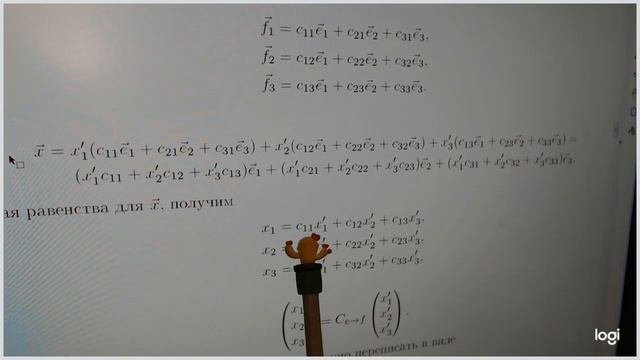 f⃗₁ = c₁₁e⃗₁ + c₂₁e⃗₂ + c₃₁e⃗₃,
f⃗₂ = c₁₂e⃗₁ + c₂₂e⃗₂ + c₃₂e⃗₃,
f⃗₃ = c₁₃e⃗₁ + c₂₃e⃗₂ + c₃₃e⃗₃.
x⃗ = x′₁(c₁₁e⃗₁ + c₂₁e⃗₂ + c₃₁e⃗₃) + x′₂(c₁₂e⃗₁ + c₂₂e⃗₂ + c₃₂e⃗₃) + x′₃(c₁₃e⃗₁ + c₂₃e⃗₂ + c₃₃e⃗₃) =
(x′₁c₁₁ + x′₂c₁₂ + x′₃c₁₃)e⃗₁ + (x′₁c₂₁ + x′₂c₂₂ + x′₃c₂₃)e⃗₂ + (x′₁c₃₁ + x′₂c₃₂ + x′₃c₃₃)e⃗₃.
равенства для x⃗, получим
x₁ = c₁₁x′₁ + c₁₂x′₂ + c₁₃x′₃,
x₂ = + c₂₂x′₂ + c₂₃x′₃,
x₃ = + c₃₂x′₂ + c₃₃x′₃.
(x₁ x₂ x₃) = C e→f (x′₁ x′₂ x′₃).
переписать в виде
logi